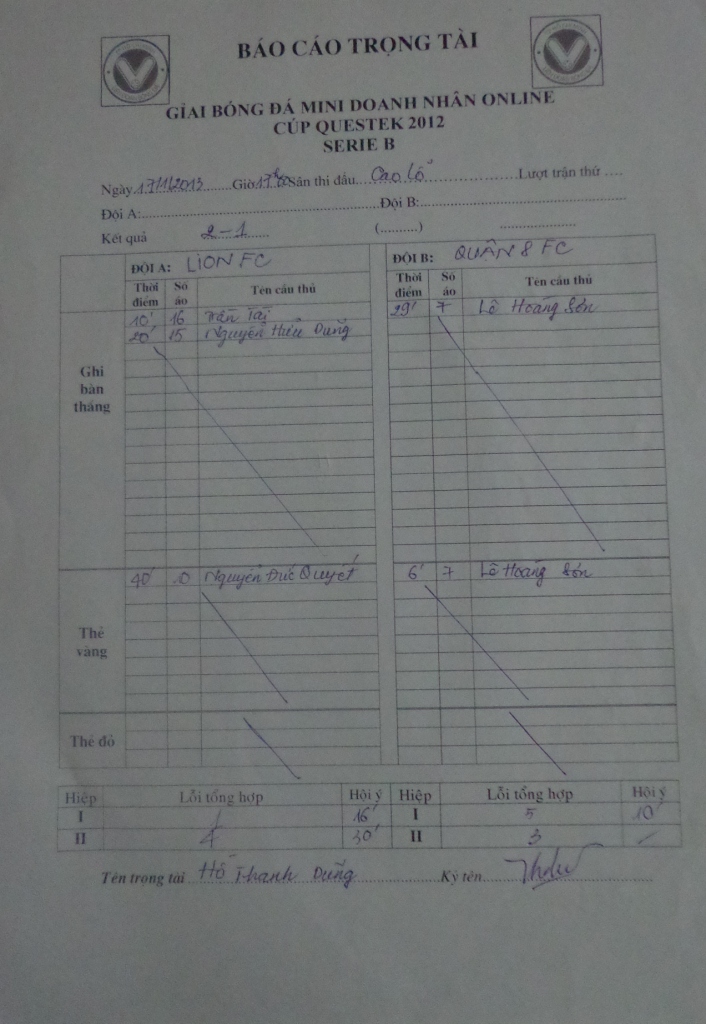 BÁO CÁO TRỌNG TÀI
GIẢI BÓNG ĐÁ MINI DOANH NHÂN ONLINE
CÚP QUESTEK 2012
SERIE B
Ngày 17/1/2013 Giờ 17h Sân thi đấu Cao Lỗ Lượt trận thứ ....
Đội A: Đội B:
Kết quả 2-1 (..........)
ĐỘI A: LION FC ĐỘI B: QUÂN 8 FC
Thời điểm Số áo Tên cầu thủ Thời điểm Số áo Tên cầu thủ
Ghi bàn thắng
10' 16 Trần Tài 29' 7 Lê Hoàng Sơn
20' 15 Nguyễn Hữu Dũng
Thẻ vàng
40' 10 Nguyễn Đức Quyết 6' 7 Lê Hoàng Sơn
Thẻ đỏ
Hiệp Lỗi tổng hợp Hội ý Hiệp Lỗi tổng hợp Hội ý
I 1 16' I 5 10'
II 4 30' II 3 -
Tên trọng tài Hồ Thanh Dũng Ký tên